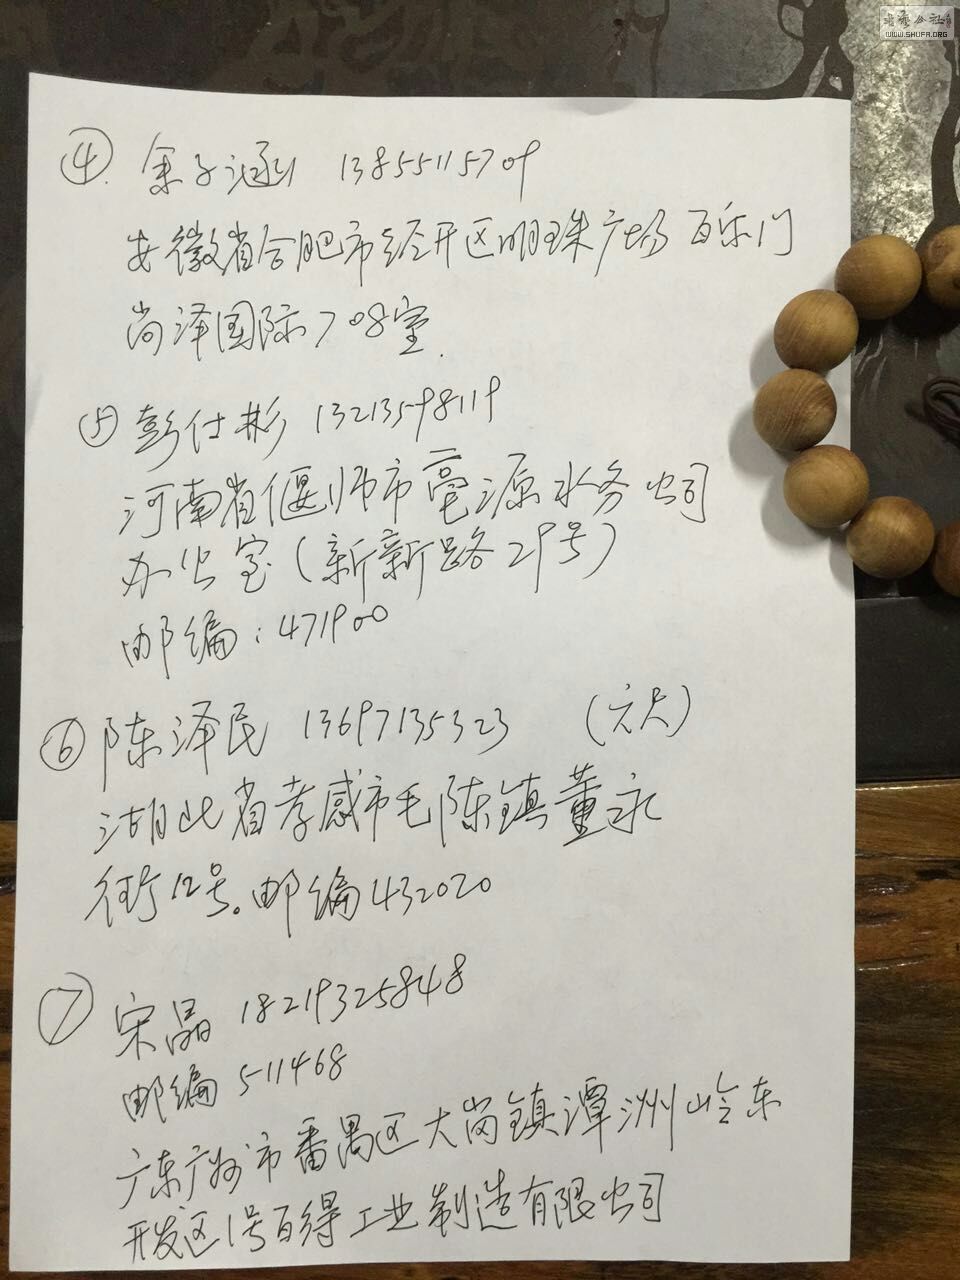 书法公社
WWW.SHUFA.ORG
④ 余子涵 13855115709
安徽省合肥市经开区明珠广场百乐门
尚泽国际708室.
⑤ 彭仕彬 13213598119
河南省偃师市亳源水务公司
办公室(新新路29号)
邮编:471900
⑥ 陈泽民 13697135323 (六尺)
湖北省孝感市毛陈镇董永
街12号。邮编432020
⑦ 宋晶 18219325848
邮编511468
广东广州市番禺区大岗镇潭洲岭东
开发区1号百得工业制造有限公司